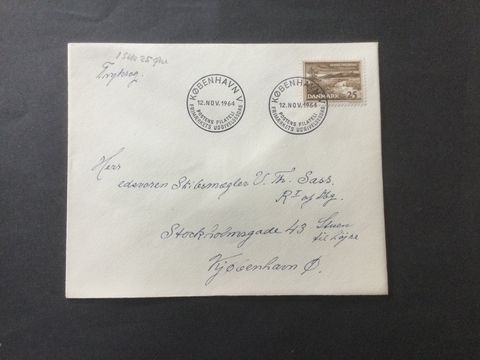 1 Stk 25 Øre
Tryksag.
KØBENHAVN V
12.NOV.1964
POSTENS FILATELI
FRIMÆRKETS UDGIVELSESDAG
KØBENHAVN V
12.NOV.1964
POSTENS FILATELI
FRIMÆRKETS UDGIVELSESDAG
DANMARK 25
Herr
edsvoren Skibsmægler V. Th. Sass,
R. af Dbg.
Stockholmsgade 43 Stuen
til højre
Kjøbenhavn Ø.